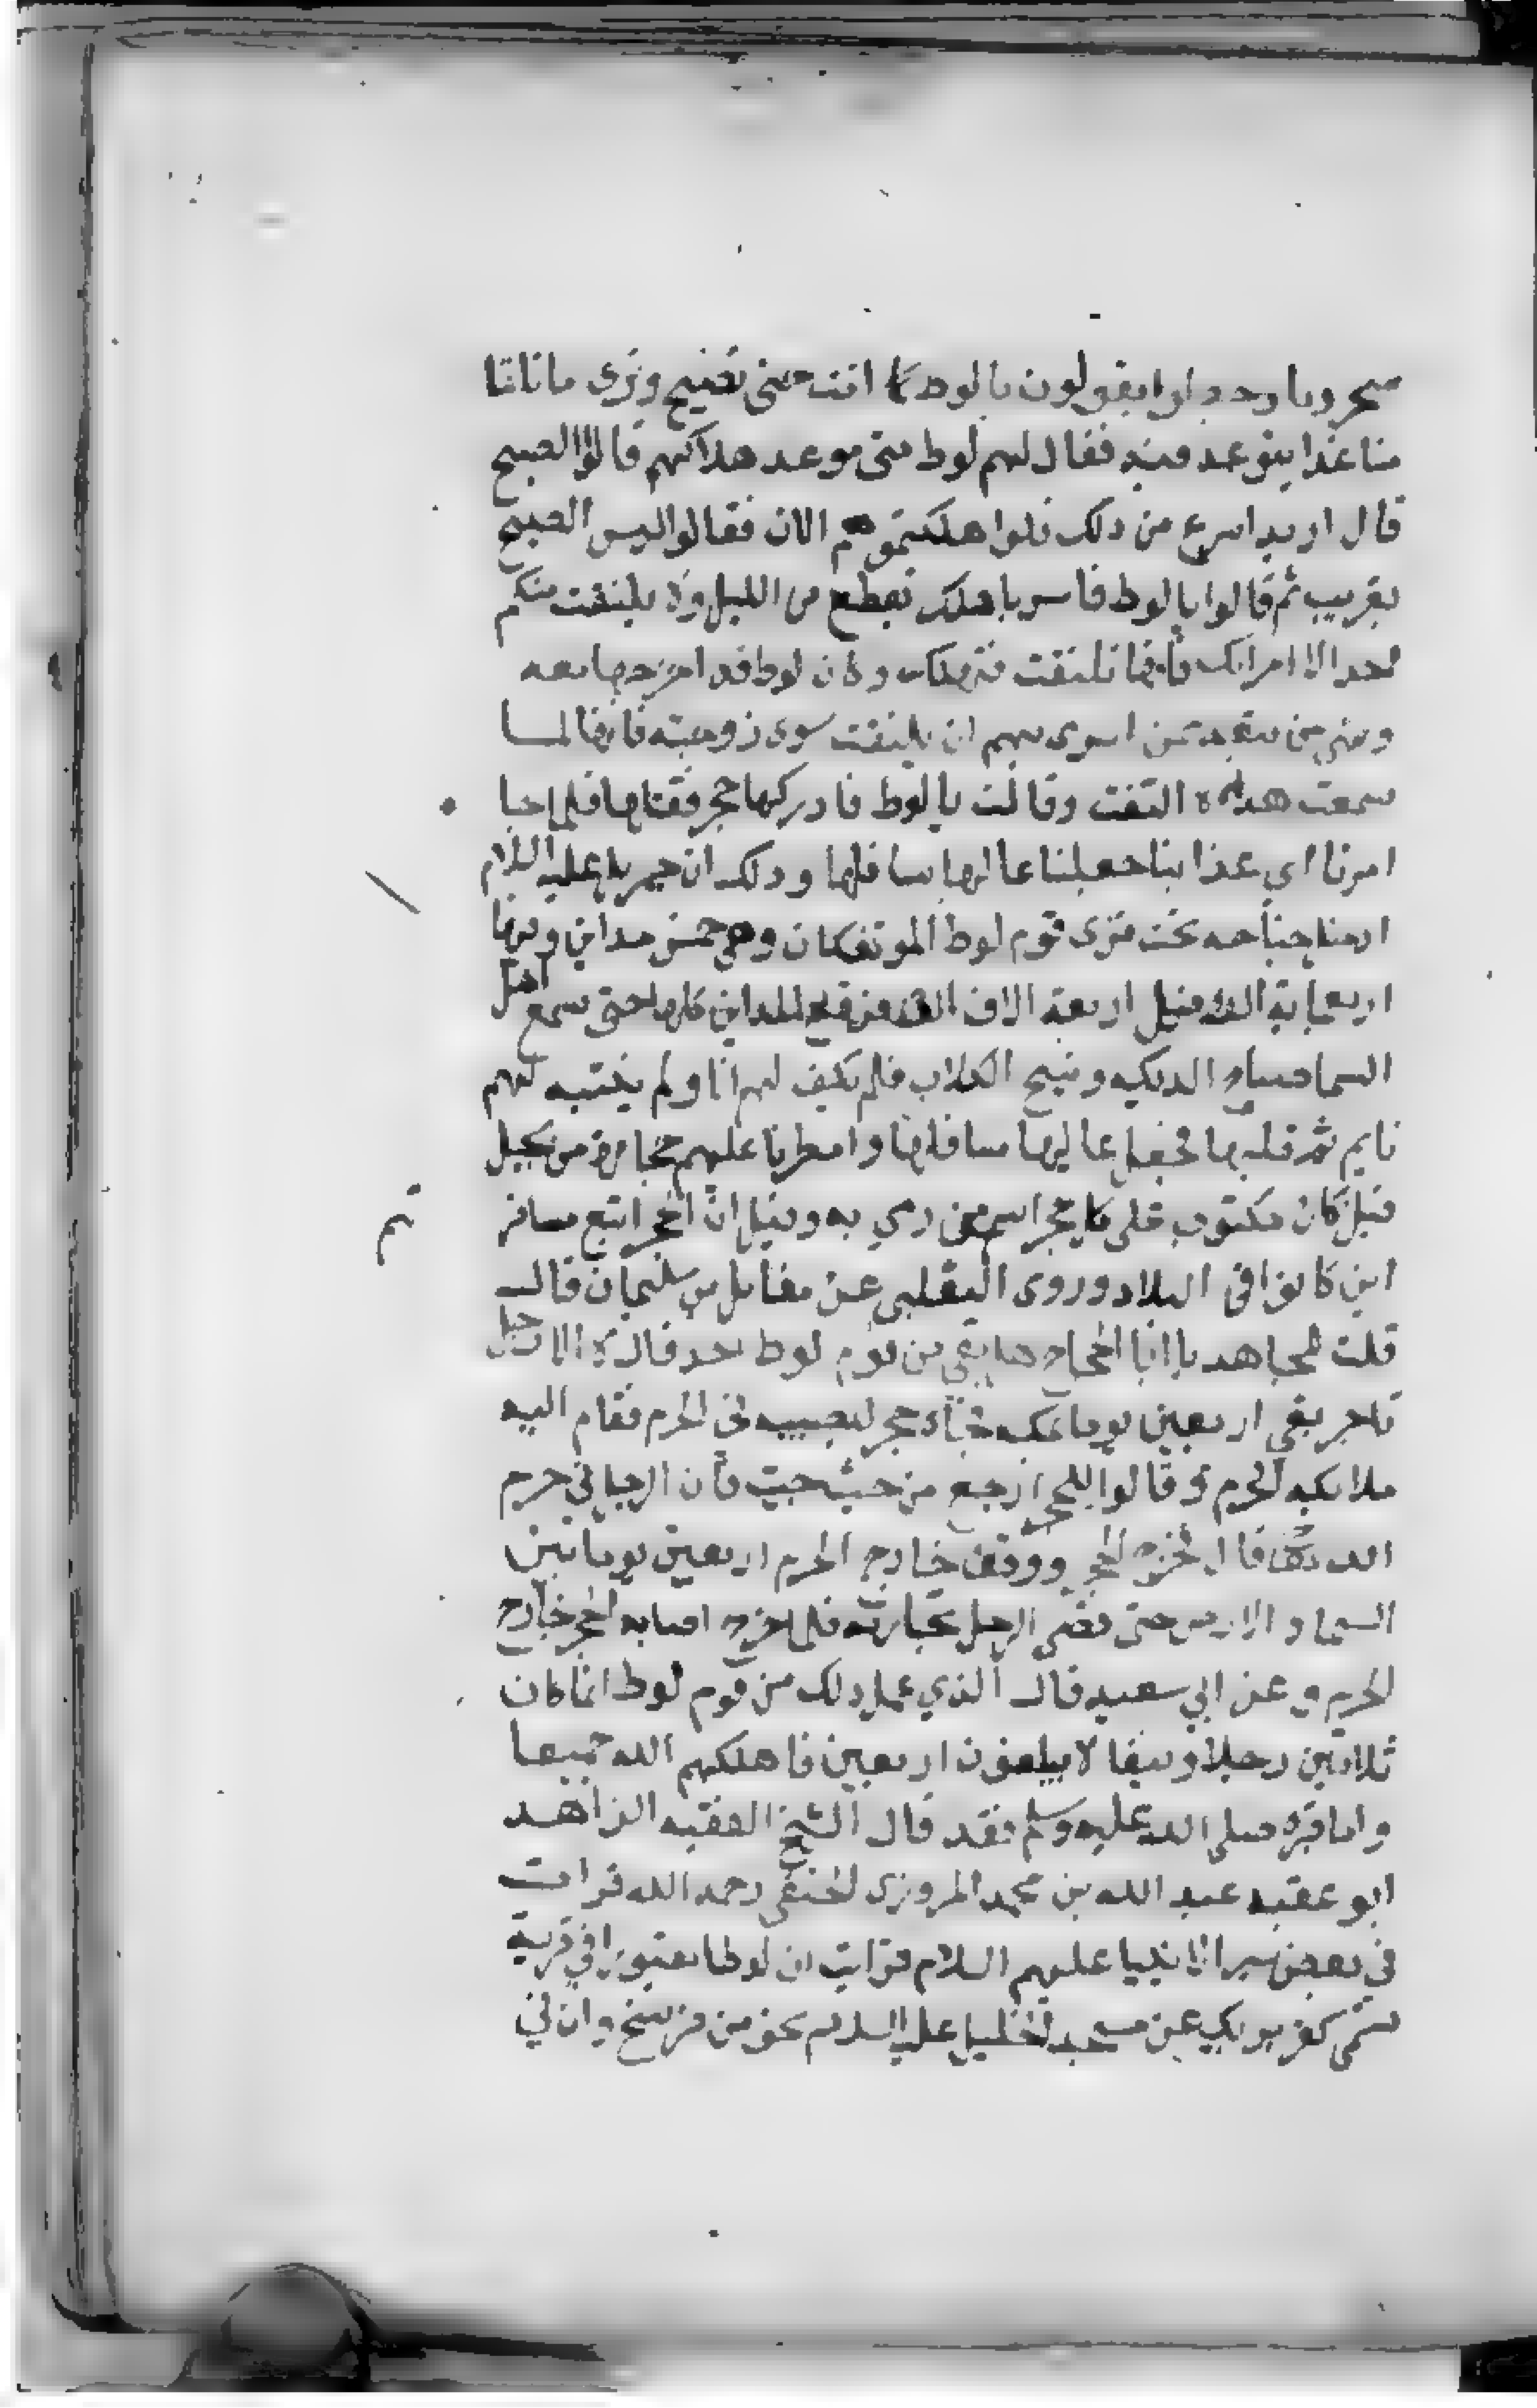 سحرونا وجعلوا يقولون يا لوط كما انت حتى تصبح وترى ما تلقا
منا غدا يتوعدونه فقال لهم لوط متى موعد هلاكهم قالوا الصبح
قال اريد اسرع من ذلك فلوا هلكتموهم الان فقالوا اليس الصبح
بقريب ثم قالوا يا لوط فاسر باهلك بقطع من الليل ولا يلتفت منكم
احد الا امراتك فانها تلتفت فتهلك وكان لوط قد اخرجها معه
ونهى من تبعه ممن اسرى بهم ان يلتفت سوى زوجته فانها لما
سمعت هده التفت وقالت يا لوط فادركها حجر فقتلها فلما جا
امرنا اي عذابنا جعلنا عاليها سافلها وذلك ان جبريل عليه السلام
ادخل جناحه تحت قرى قوم لوط الموتفكات وهي خمس مداين وفيها
اربعماية الف وقيل اربعة الاف الف فرفع المداين كلها حتى سمع اهل
السما صياح الديكه ونبيح الكلاب فلم يكف لهم انا ولم ينتبه لهم
نايم ثم قلبها فجعل عاليها سافلها وامطرنا عليهم حجارة من سجيل
قيل كان مكتوب على كل حجر اسم من رمي به وقيل ان الحجر اتبع مسافر
اين كانوا في البلاد وروى الثعلبي عن مقاتل بن سليمان قال
قلت لمجاهد يا ابا الحجاج هل بقي من قوم لوط احد قال لا الا رجل
تاجر بقي اربعين يوما بمكه فجاء حجر ليصيبه في الحرم فقام اليه
ملايكه الحرم وقالوا للحجر ارجع من حيث جيت فان الرجل في حرم
الله قال فخرج الحجر ووقف خارج الحرم اربعين يوما بين
السما والارض حتى قضى الرجل تجارته فلما خرج اصابه الحجر خارج
الحرم وعن ابي سعيد قال الذي عمل ذلك من قوم لوط انما كان
ثلاثين رجلا ونيفا لا يبلغون اربعين فاهلكهم الله جميعا
واما قبره صلى الله عليه وسلم فقد قال الشيخ الفقيه الزاهد
ابو عقبه عبد الله بن محمد المروزي الحنفي رحمه الله قرات
في بعض سير الانبيا عليهم السلام قرات ان لوطا مقبورا في قرية
تسمى كفر بريك عن مسجد الخليل عليه السلام نحو من فرسخ وان في